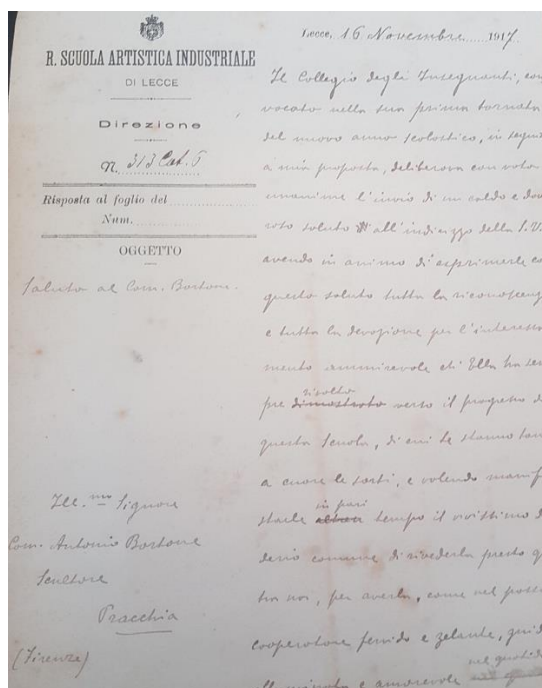 R. SCUOLA ARTISTICA INDUSTRIALE
DI LECCE
Direzione
N. 313 Cat. 6
Risposta al foglio del
Num.
OGGETTO
Saluto al Com. Bortone.
Ill.mo Signore
Com. Antonio Bortone
Scultore
Pracchia
(Firenze)
Lecce, 16 Novembre 1917.
Il Collegio degli Insegnanti, con
vocato nella sua prima tornata
del nuovo anno scolastico, in segui
a mia proposta, deliberava con voto
unanime l'invio di un caldo e
saluto all'indirizzo della S.V.
avendo in animo di esprimerle co
questo saluto tutta la riconoscenz
e tutta la devozione per l'interessa
mento ammirevole ch'Ella ha sem
rivolto
pre dimostrato verso il progresso d
questa Scuola, di cui le stanno tan
a cuore le sorti, e volendo manif
in pari
starle tempo il vivissimo d
derio comune di rivederla presto q
tra noi, per averla, come nel pass
cooperatore fervido e zelante, guid
nel quotid
illuminata e amorevole